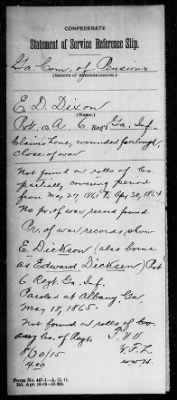 CONFEDERATE
Statement of Service Reference Slip.
Ga Com. of Pensions
(Source of communication.)
E. D. Dixon
(Name.)
Pvt. Co A. 6 Reg't Ga. Inf.
Claims home, wounded furlough,
close of war
Not found on rolls of Co.
partially covering period
from May 27, 1861 to Apr 30, 1864
No pr. of war record found
Pr. of war records, show
E. Dickson (also borne
as Edward Dickson) Pvt
6 Regt. Ga. Inf.
Paroled at Albany Ga
May 18, 1865.
Not found on rolls of Co
any Co. of Regt.
8/20/15
400
Form No. 447-1—A. G. O.